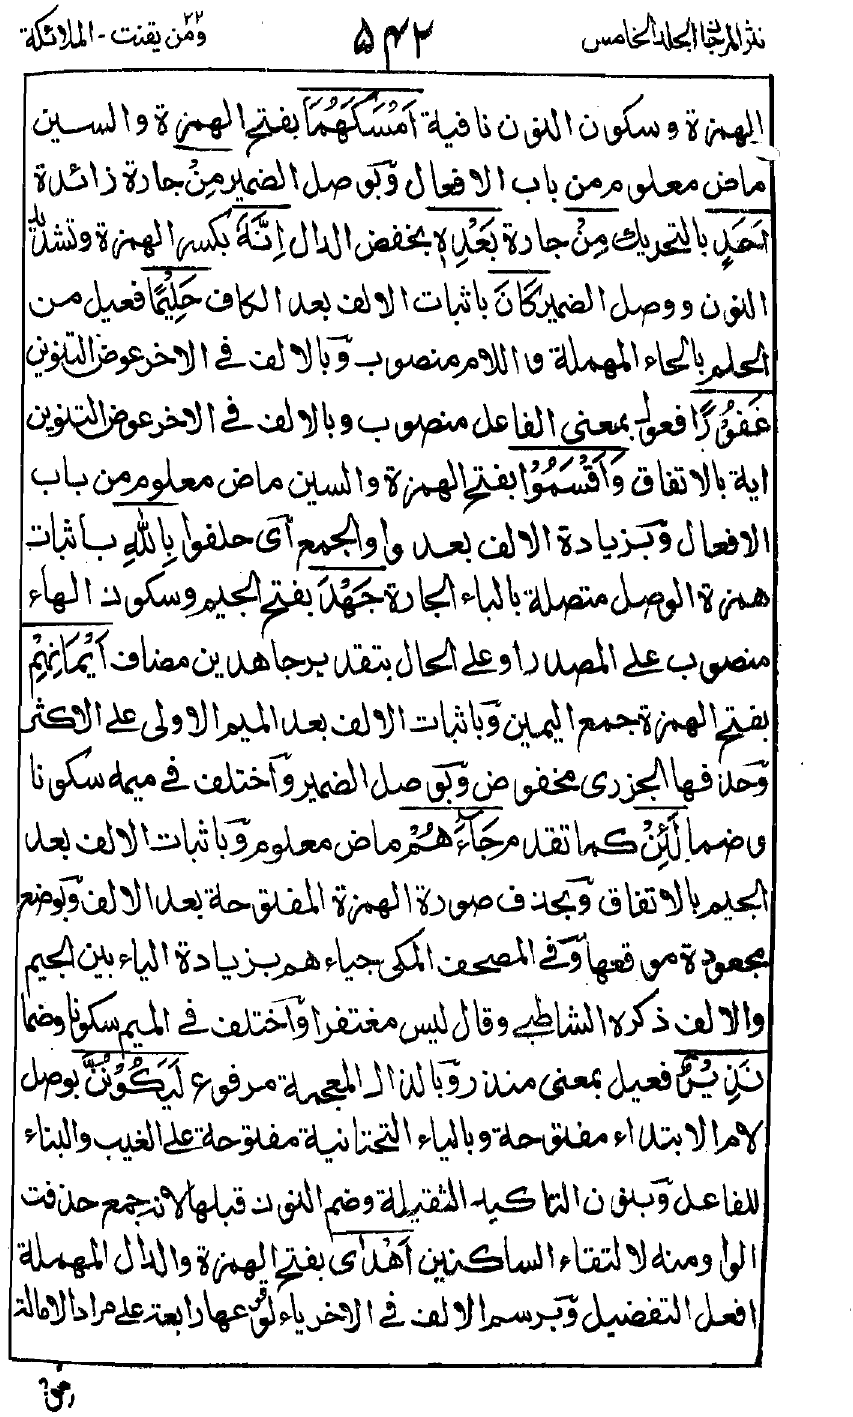 نثر المرجان المجلد الخامس
۵۴۲
ومن يقنت - الملائكة
۲۲
الهمزة وسكون النون نافية أَمْسَكَهُمَا بفتح الهمزة والسين
ماض معلوم من باب الافعال وَبوصل الضمير مِنْ جارة زائدة
أَحَدٍ بالتحريك مِنْ جارة بَعْدِهٖ بخفض الدال إِنَّهٗ بكسر الهمزة وتشديد
النون ووصل الضمير كَانَ باثبات الالف بعد الكاف حَلِيْمًا فعيل من
الحلم بالحاء المهملة واللام منصوب وَبالالف في الاخر عوض التنوين
غَفُوْرًا فعول بمعنى الفاعل منصوب وبالالف في الاخر عوض التنوين
اية بالاتفاق وَأَقْسَمُوْا بفتح الهمزة والسين ماض معلوم من باب
الافعال وَبزيادة الالف بعد واو الجمع أي حلفوا بِاللّٰهِ باثبات
همزة الوصل متصلة بالباء الجارة جَهْدَ بفتح الجيم وسكون الهاء
منصوب على المصدر او على الحال بتقدير جاهدين مضاف أَيْمَانِهِمْ
بفتح الهمزة جمع اليمين وَباثبات الالف بعد الميم الاولى على الاكثر
وَحذفها الجزري مخفوض وَبوصل الضمير وَاختلف في ميمه سكونا
وضما لَئِنْ كما تقدم جَآءَهُمْ ماض معلوم وَباثبات الالف بعد
الجيم بالاتفاق وَبحذف صورة الهمزة المفتوحة بعد الالف وَبوضع
مجعودة موقعها وَفي المصحف المكي جياءهم بزيادة الياء بين الجيم
والالف ذكره الشاطبي وقال ليس مغتفرا وَاختلف في الميم سكونا وضما
نَذِيْرٌ فعيل بمعنى منذر وَبالذال المعجمة مرفوع لَيَكُوْنُنَّ بوصل
لام الابتداء مفتوحة وبالياء التحتانية مفتوحة على الغيب والبناء
للفاعل وَبنون التاكيد الثقيلة وضم النون قبلها لانه جمع حذفت
الواو منه لالتقاء الساكنين أَهْدٰى بفتح الهمزة والدال المهملة
افعل التفضيل وَبرسم الالف في الاخر ياء لوقوعها رابعة على مراد الامالة